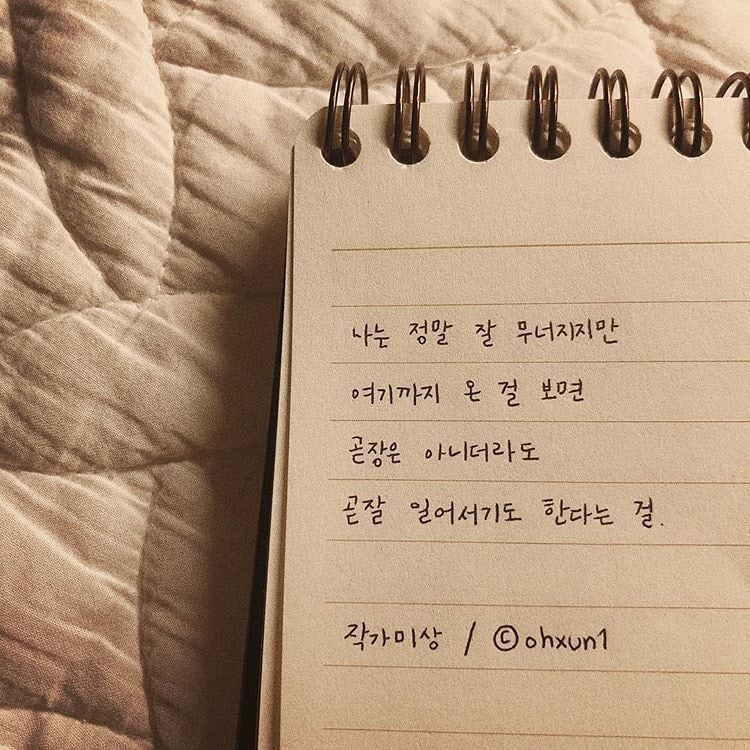 나는 정말 잘 무너지지만
여기까지 온 걸 보면
곧장은 아니더라도
곧잘 일어서기도 한다는 걸.
작가미상 / ©ohxun1